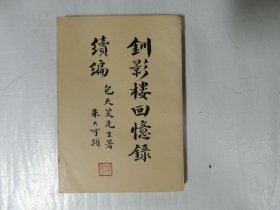 釧影楼回憶録
續編
包天笑先生著
朱大可題